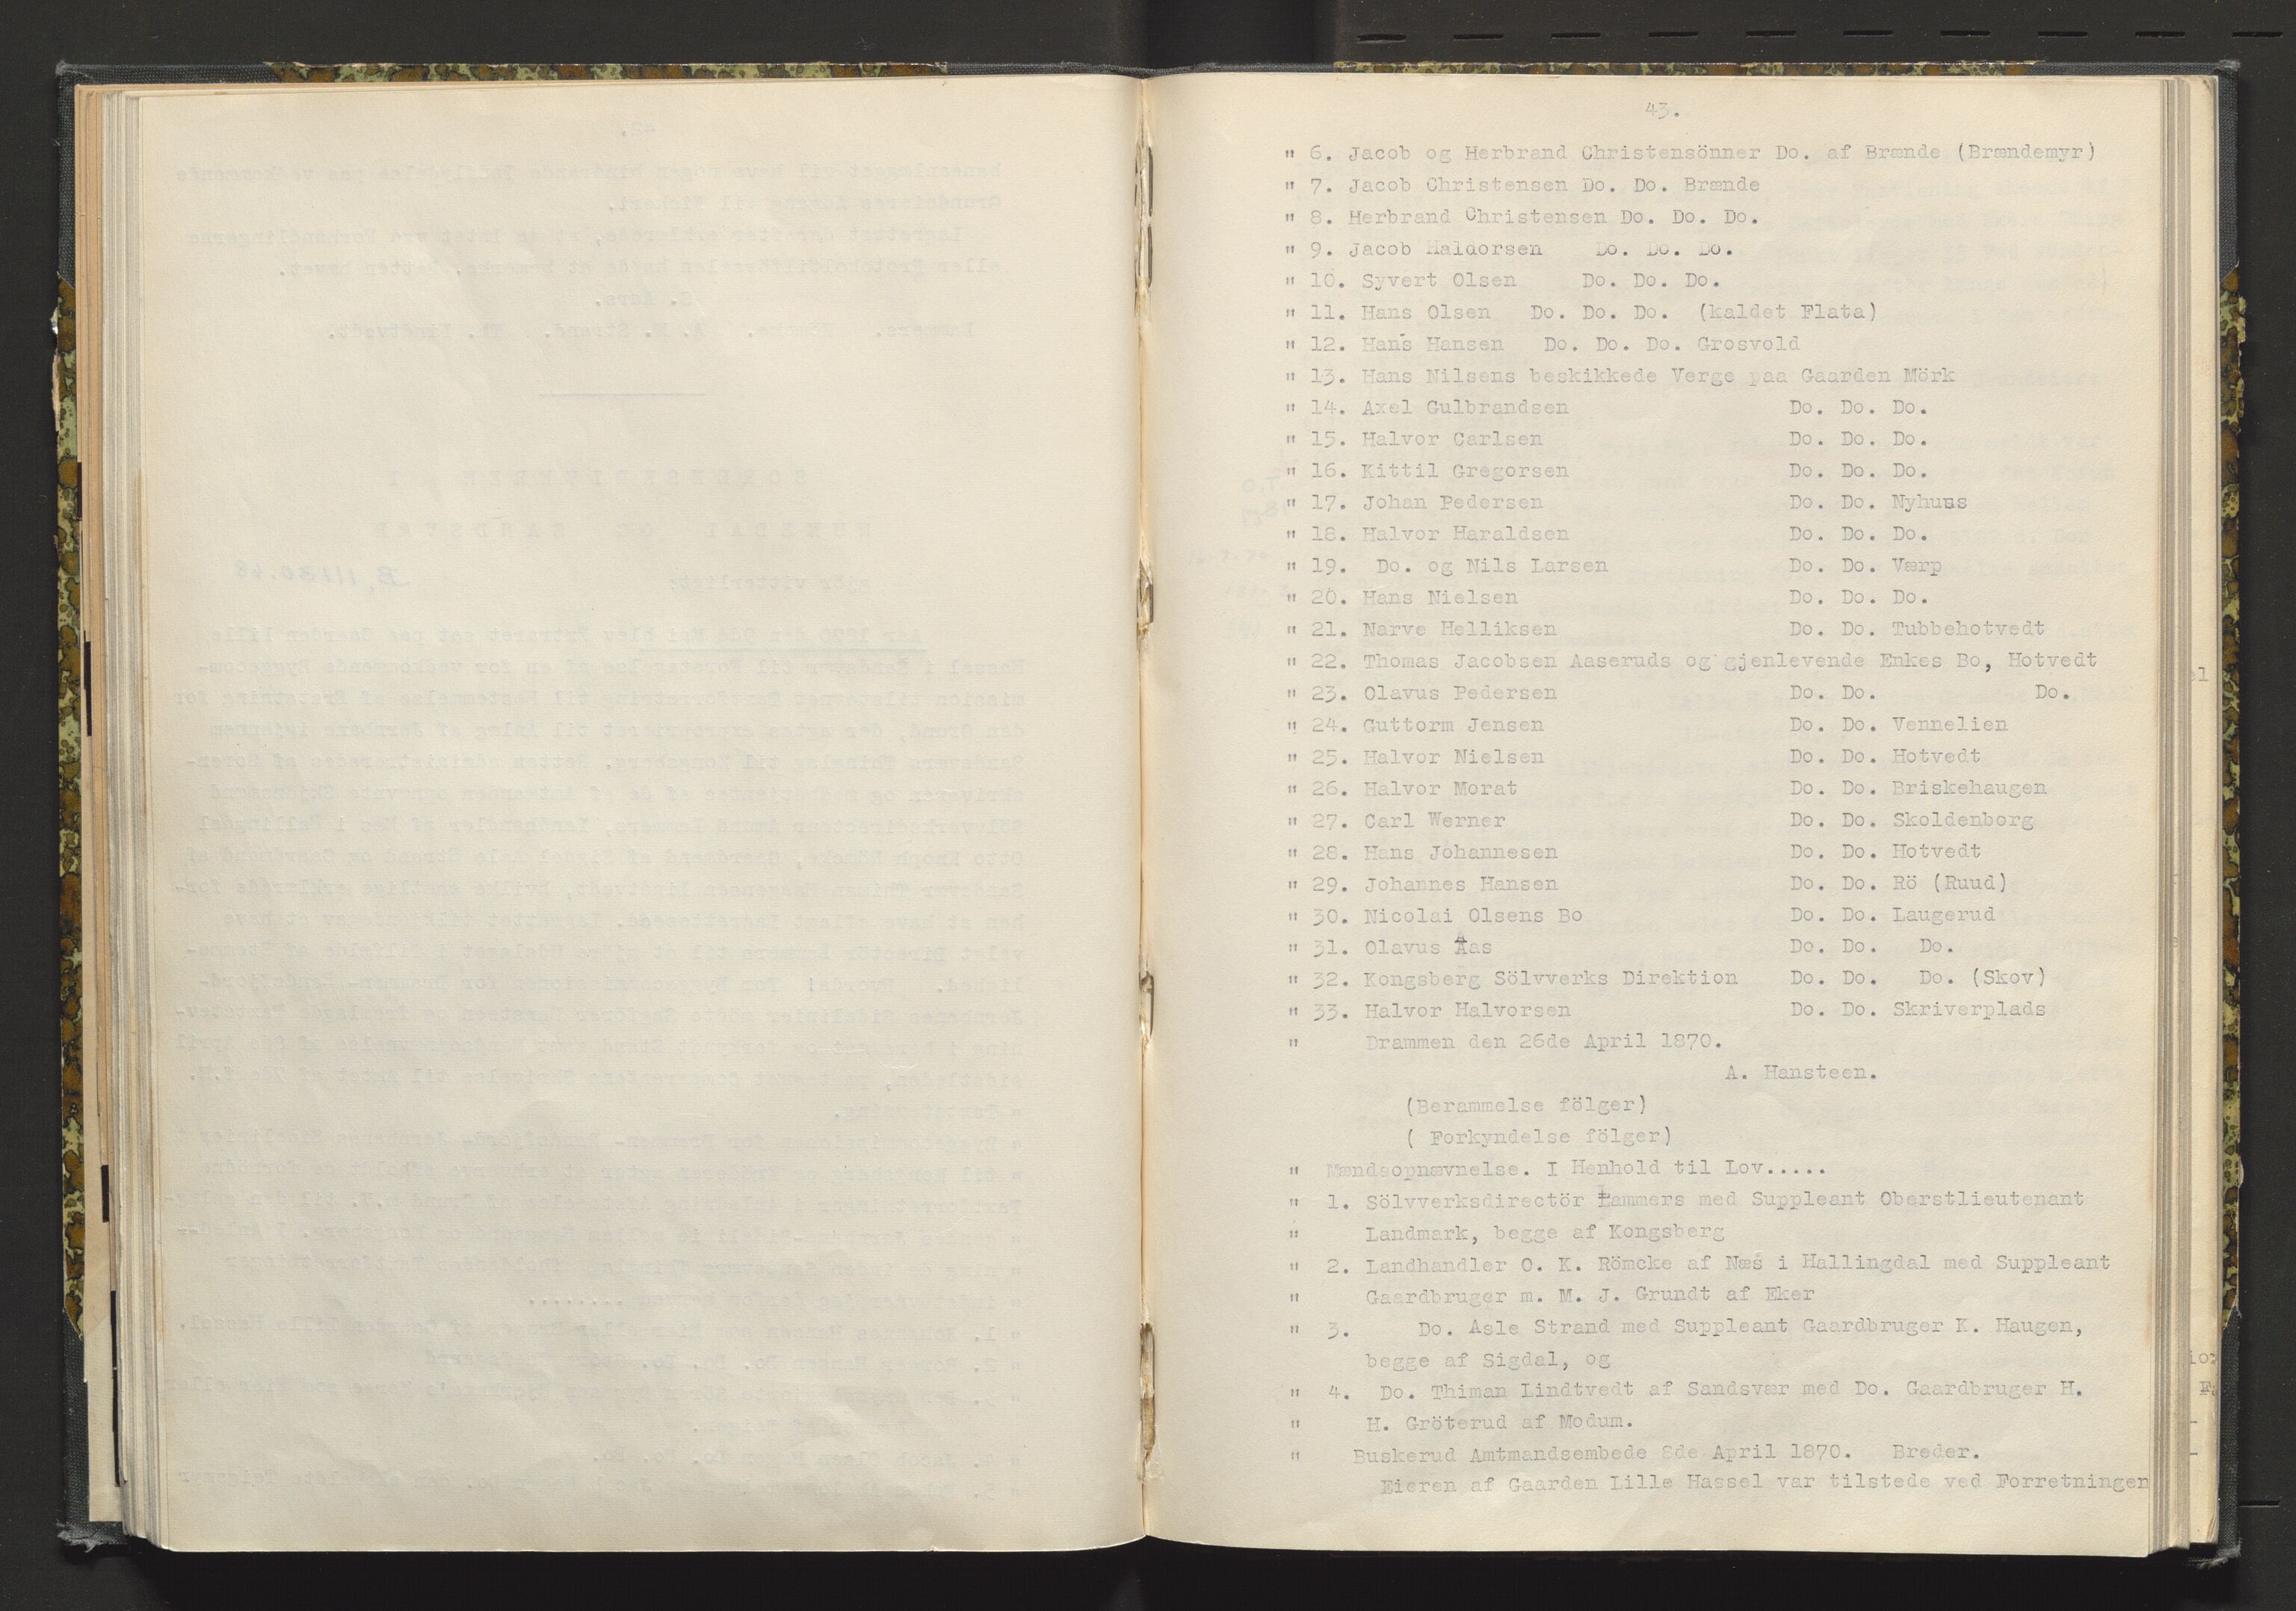 43.
" 6. Jacob og Herbrand Christensönner Do. af Brænde (Brændemyr)
" 7. Jacob Christensen Do. Do. Brænde
" 8. Herbrand Christensen Do. Do. Do.
" 9. Jacob Haldorsen Do. Do. Do.
" 10. Syvert Olsen Do. Do. Do.
" 11. Hans Olsen Do. Do. Do. (kaldet Flata)
" 12. Hans Hansen Do. Do. Do. Grosvold
" 13. Hans Nilsens beskikkede Verge paa Gaarden Mörk
" 14. Axel Gulbrandsen Do. Do. Do.
" 15. Halvor Carlsen Do. Do. Do.
" 16. Kittil Gregorsen Do. Do. Do.
" 17. Johan Pedersen Do. Do. Nyhuus
" 18. Halvor Haraldsen Do. Do. Do.
" 19. Do. og Nils Larsen Do. Do. Værp
" 20. Hans Nielsen Do. Do. Do.
" 21. Narve Helliksen Do. Do. Tubbehotvedt
" 22. Thomas Jacobsen Aaseruds og gjenlevende Enkes Bo, Hotvedt
" 23. Olavus Pedersen Do. Do. Do.
" 24. Guttorm Jensen Do. Do. Vennelien
" 25. Halvor Nielsen Do. Do. Hotvedt
" 26. Halvor Morat Do. Do. Briskehaugen
" 27. Carl Werner Do. Do. Skoldenborg
" 28. Hans Johannesen Do. Do. Hotvedt
" 29. Johannes Hansen Do. Do. Rö (Ruud)
" 30. Nicolai Olsens Bo Do. Do. Laugerud
" 31. Olavus Aas Do. Do. Do.
" 32. Kongsberg Sölvverks Direktion Do. Do. Do. (Skov)
" 33. Halvor Halvorsen Do. Do. Skriverplads
" Drammen den 26de April 1870.
A. Hansteen.
(Berammelse fölger)
( Forkyndelse fölger)
" Mændsopnævnelse. I Henhold til Lov.....
" 1. Sölvverksdirectör Lammers med Suppleant Oberstlieutenant
" Landmark, begge af Kongsberg
" 2. Landhandler O. K. Römcke af Næs i Hallingdal med Suppleant
" Gaardbruger m. M. J. Grundt af Eker
" 3. Do. Asle Strand med Suppleant Gaardbruger K. Haugen,
begge af Sigdal, og
" 4. Do. Thiman Lindtvedt af Sandsvær med Do. Gaardbruger H.
" H. Gröterud af Modum.
" Buskerud Amtmandsembede 8de April 1870. Breder.
Eieren af Gaarden Lille Hassel var tilstede ved Forretningen